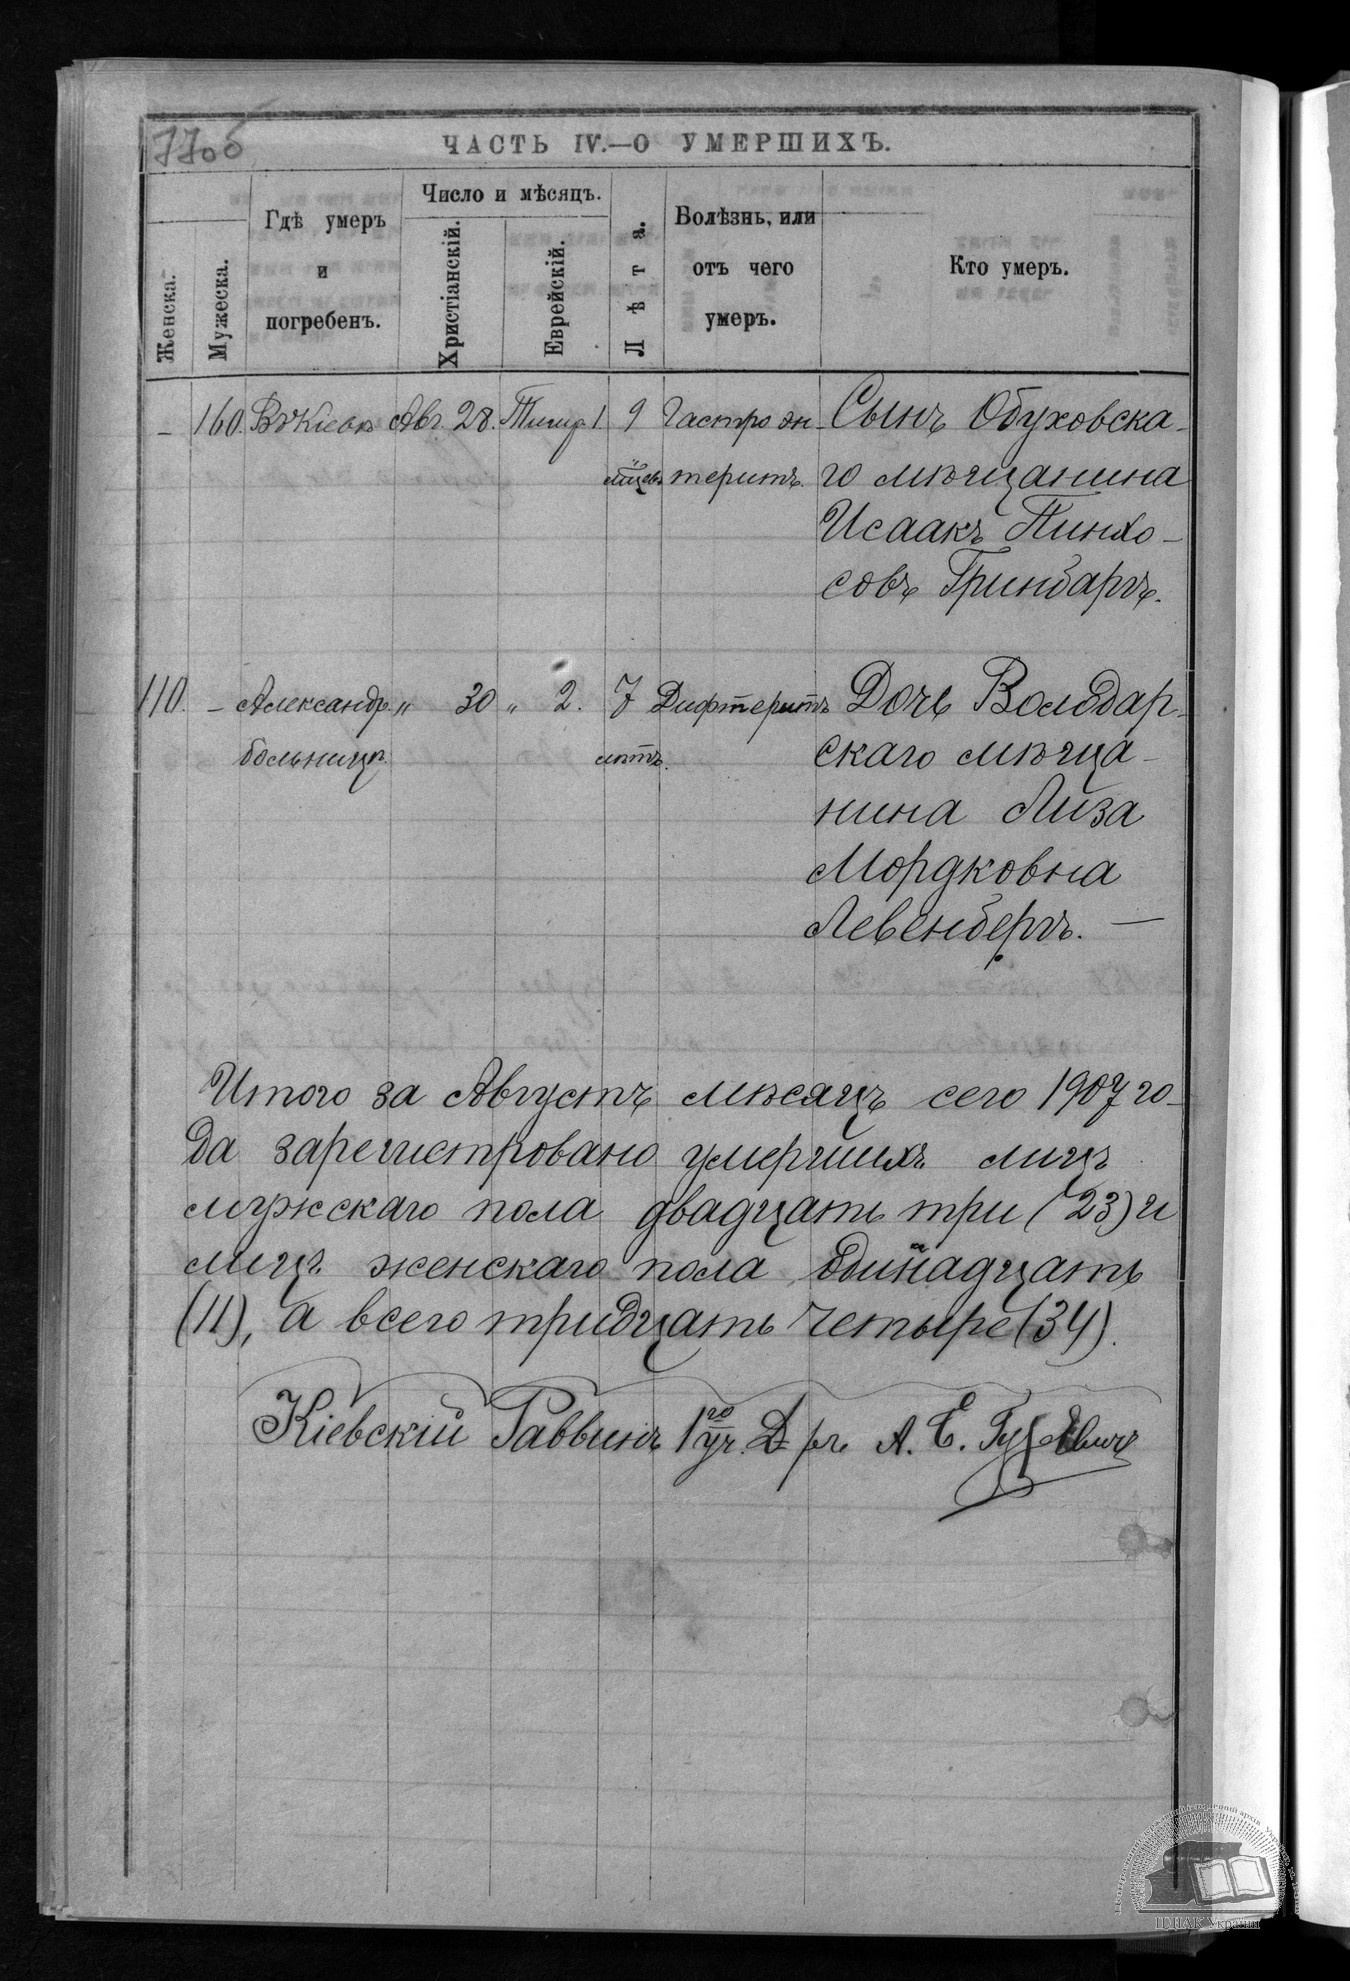 77об
ЧАСТЬ IV.—О УМЕРШИХЪ.
Женска.
Мужеска.
Гдѣ умеръ
и
погребенъ.
Число и мѣсяцъ.
Христіанскій.
Еврейскій.
Лѣта.
Болѣзнь, или
отъ чего
умеръ.
Кто умеръ.
– 160. Въ Кіевѣ Авг. 28. Тишр. 1 9 Гастро эн- Сынъ Обуховска-
мѣсяц. теритъ. го мѣщанина
Исаакъ Пинхо-
совъ Гринбаргъ.
110. – Александр. „ 30 „ 2. 7 Дифтеритъ Дочь Володар-
больницѣ. лѣтъ. скаго мѣща-
нина Лиза
Мордковна
Левенбергъ. —
Итого за Августъ мѣсяцъ сего 1907 го-
да зарегистровано умершихъ лицъ
мужскаго пола двадцать три (23) и
лицъ женскаго пола одинадцать
(11), а всего тридцать четыре (34).
Кіевскій Раввинъ 1го уч. Д-ръ А. Е. Гуревичъ
ЦДІАК України